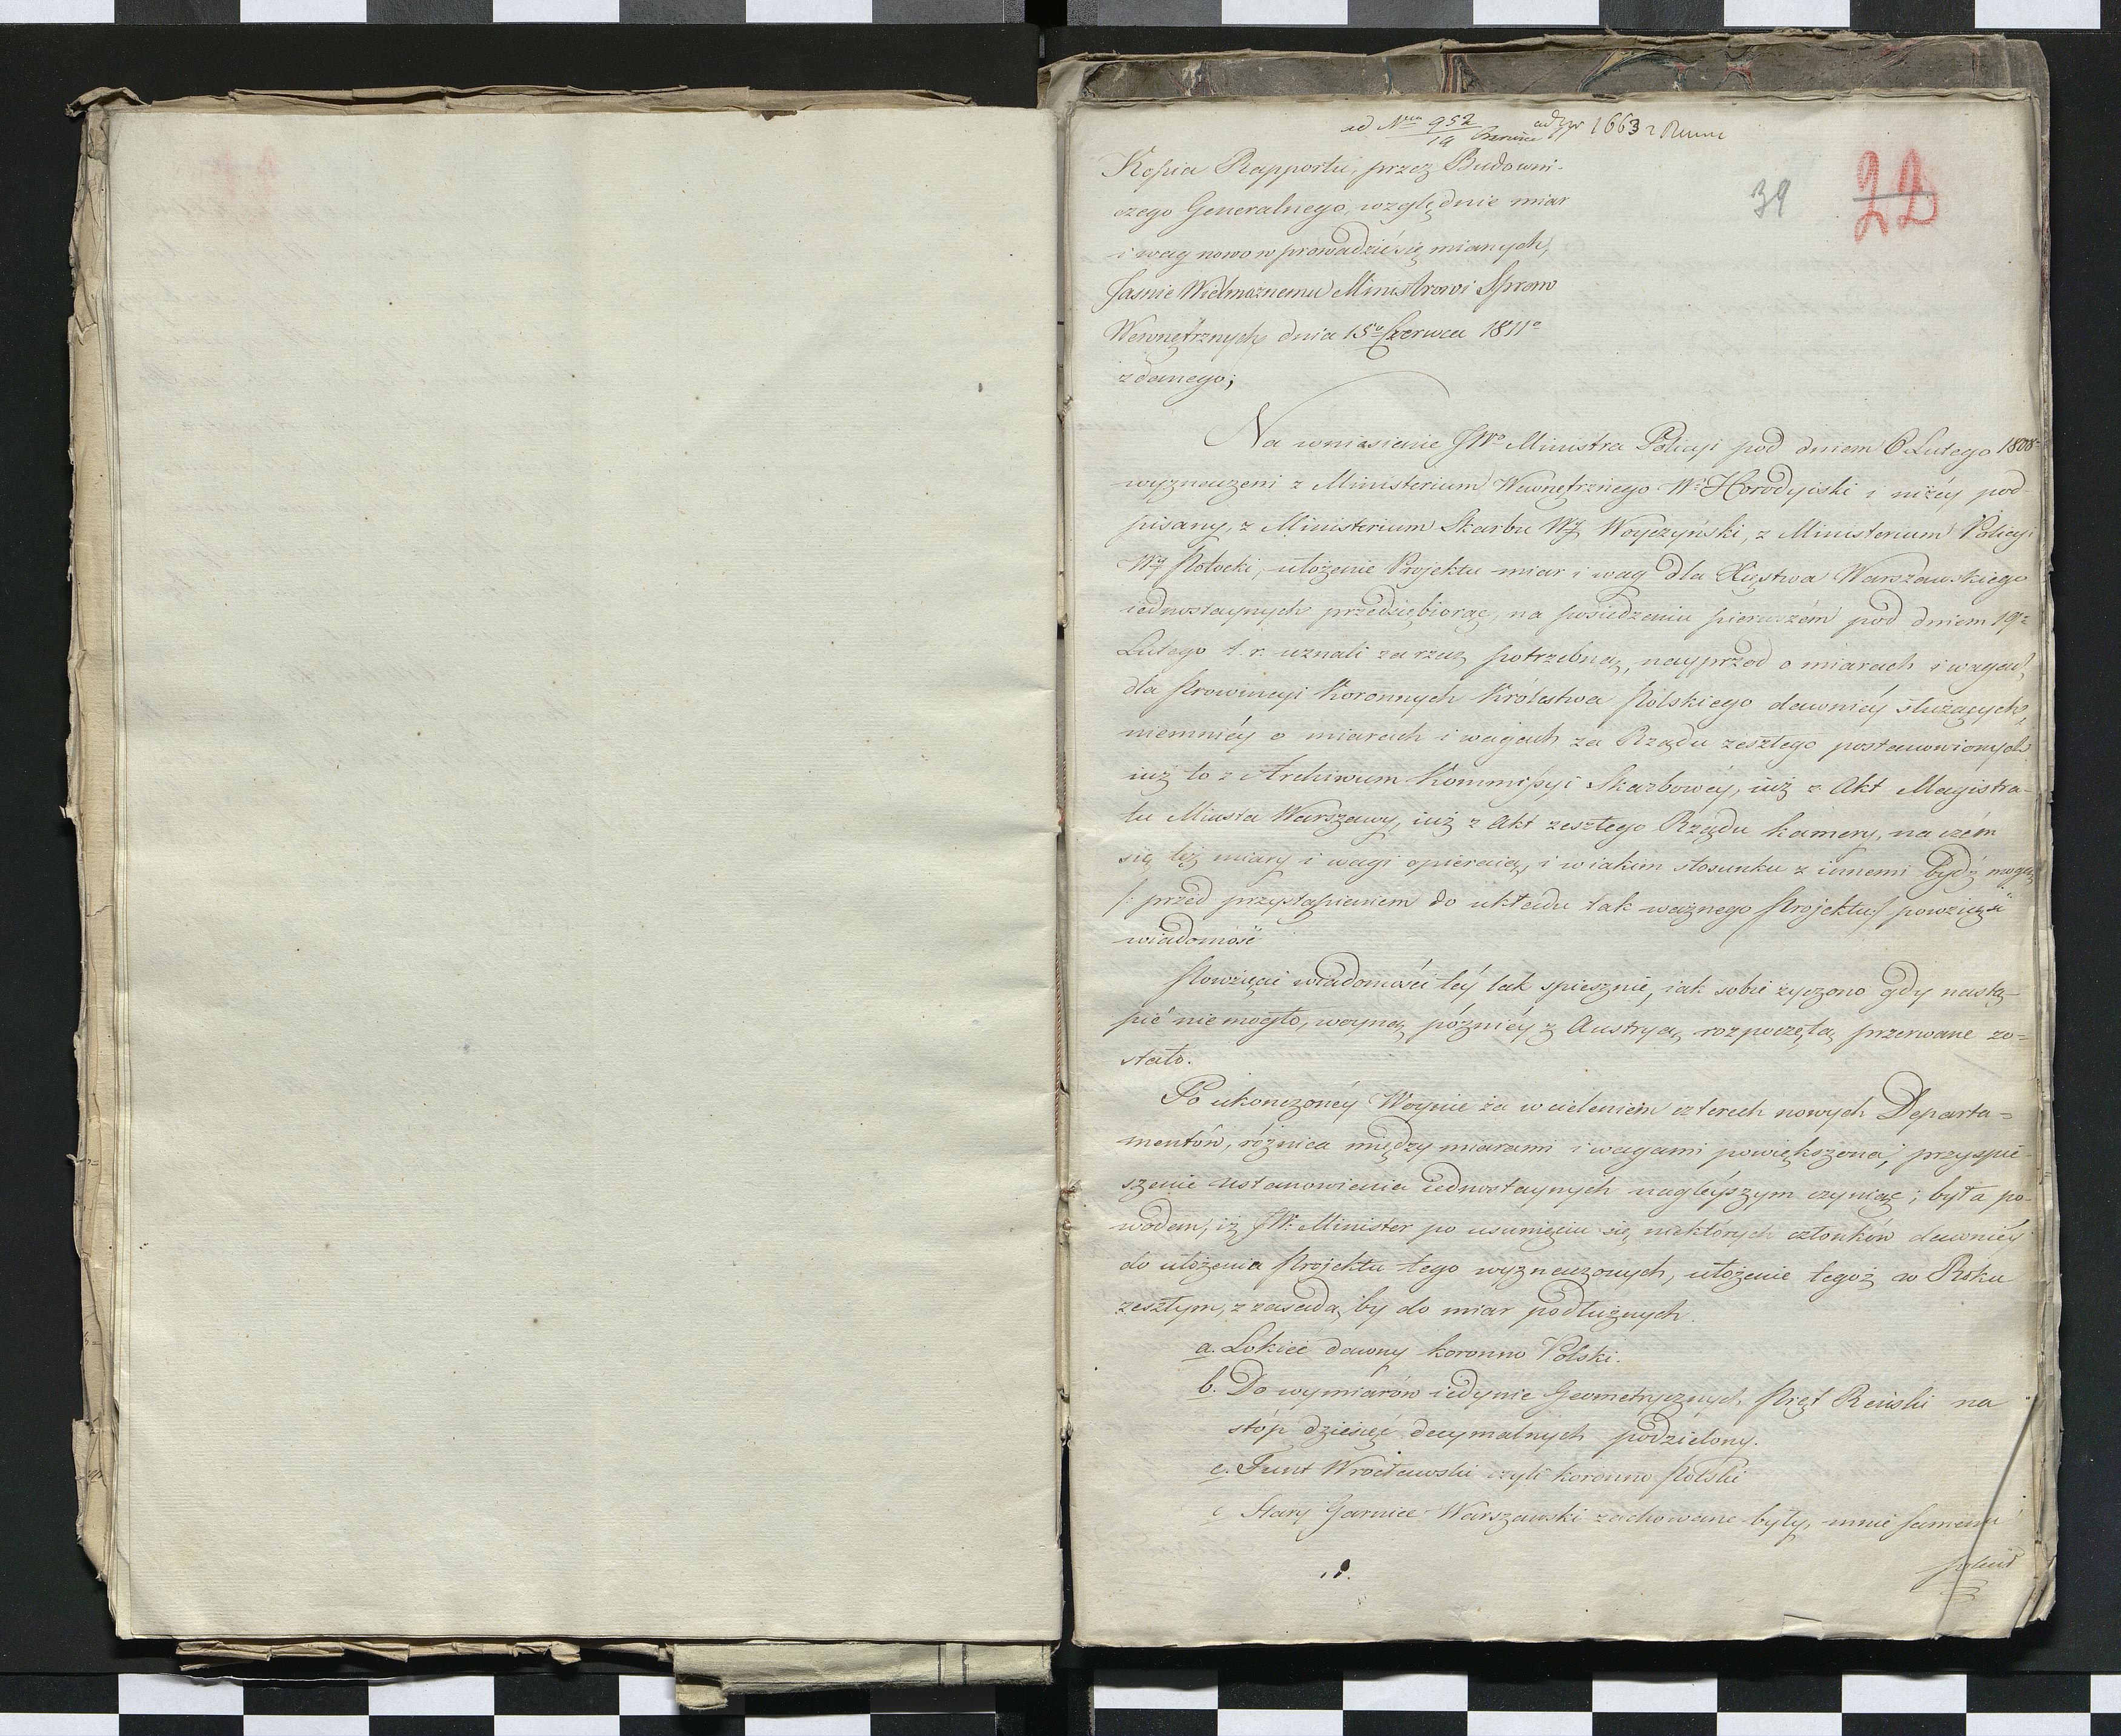 ad Nrum 952/19 Czerwca ad 1663
39
Kopia Rapportu, przez Budowni-
czego Generalnego, względnie miar
i wag nowo wprowadzić się mianych,
Jasnie Wielmożnemu Ministrowi Spraw
Wewnętrznych dnia 15go Czerwca 1811o
zdanego;
Na wniesienie JWo Ministra Policyi pod dniem 6 Lutego 1808
wyznaczeni z Ministerium Wewnętrznego Wy Horodyiski i niżey pod-
pisany, z Ministerium Skarbu Wy Woyczyński, z Ministerium Policyi
Wy Potocki, ułożenie Projektu miar i wag dla Xięstwa Warszawskiego
iednostaynych przedsiębiorąc, na posiedzeniu pierwszém pod dniem 19o
Lutego t. r. uznali za rzecz potrzebną, nayprzod o miarach i wagach,
dla Prowincyi Koronnych Królestwa Polskiego dawniéy służących,
niemniéy o miarach i wagach za Rządu zeszłego postanowionych
iuż to z Archiwum Kommissyi Skarbowéy, iuż z Akt Magistra-
tu Miasta Warszawy, iuż z Akt zeszłego Rządu kamery, na czém
się też miary i wagi opieraią, i w iakim stosunku z innemi bydź mogą
/: przed przystąpieniem do układu tak ważnego Projektu:/ powziąść
wiadomość
Powzięcie wiadomości téy tak spiesznie, iak sobie życzono gdy nastą-
pić nie mogło, woyną późniéy z Austryą rozpoczętą przerwane zo-
stało.
Po ukonczonéy Woynie za wcieleniem czterech nowych Departa-
mentów, różnica między miarami i wagami powiększona, przyspie-
szenie ustanowienia iednostaynych nagléyszym czyniąc; była po-
wodem, iż JW. Minister po usunięciu się niektórych członków dawniéy
do ułożenia Projektu tego wyznaczonych, ułożenie tegoż w Roku
zeszłym, z zasadą by do miar podłużnych.
a. Łokieć dawny koronno Polski.
b. Do wymiarów iedynie Geometrycznych Pręt Reński na
stóp dziesięć decymalnych podzielony.
c. Funt Wrocławski czyli koronno Polski
Stary Garniec Warszawski zachowane były, mnie samemu